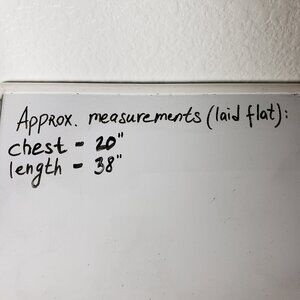 Approx. measurements (laid flat):
chest - 20"
length - 38"